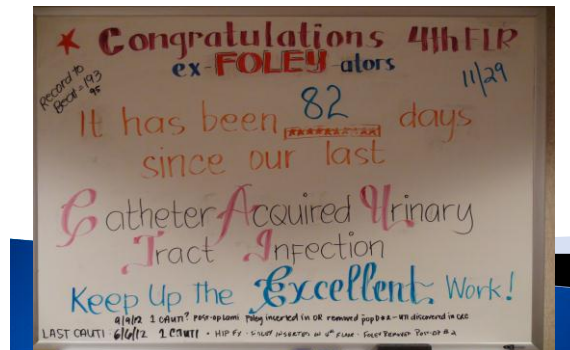 ★ Congratulations 4th FLR
ex-FOLEY-ators
Record to
Beat = 193
95
11/29
It has been 82 days
since our last
Catheter Acquired Urinary
Tract Infection
Keep Up The Excellent Work!
9/9/12 1 CAUTI? POST-OP Foley inserted in OR removed pop D#2 - UTI discovered in
LAST CAUTI: 6/6/12 1 CAUTI • HIP FX - FOLEY INSERTED IN FOLEY REMOVED POST-OP #2